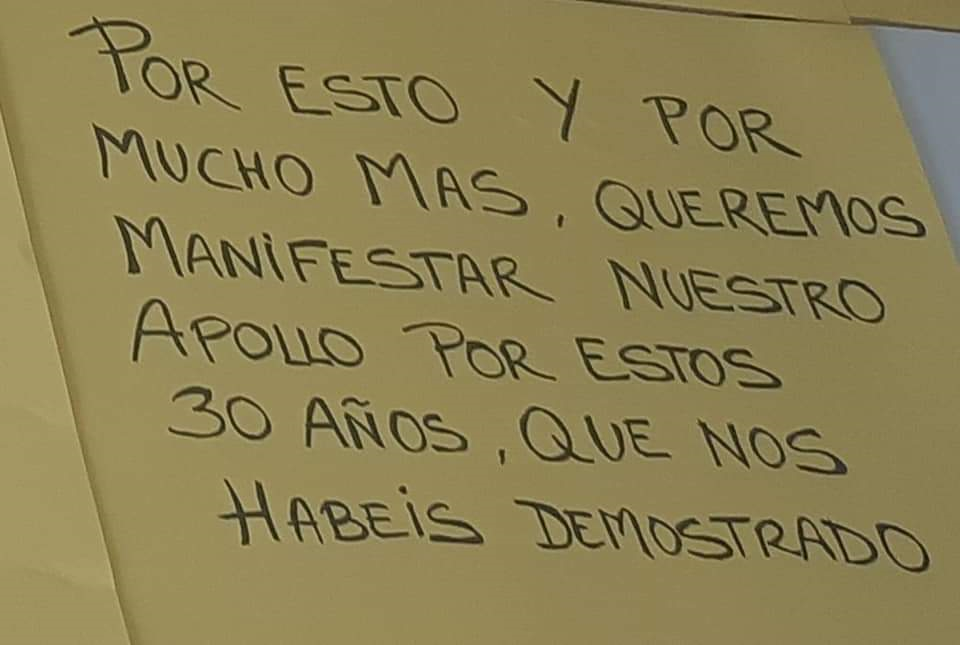 POR ESTO Y POR
MUCHO MAS, QUEREMOS
MANIFESTAR NUESTRO
APOLLO POR ESTOS
30 AÑOS, QUE NOS
HABEIS DEMOSTRADO